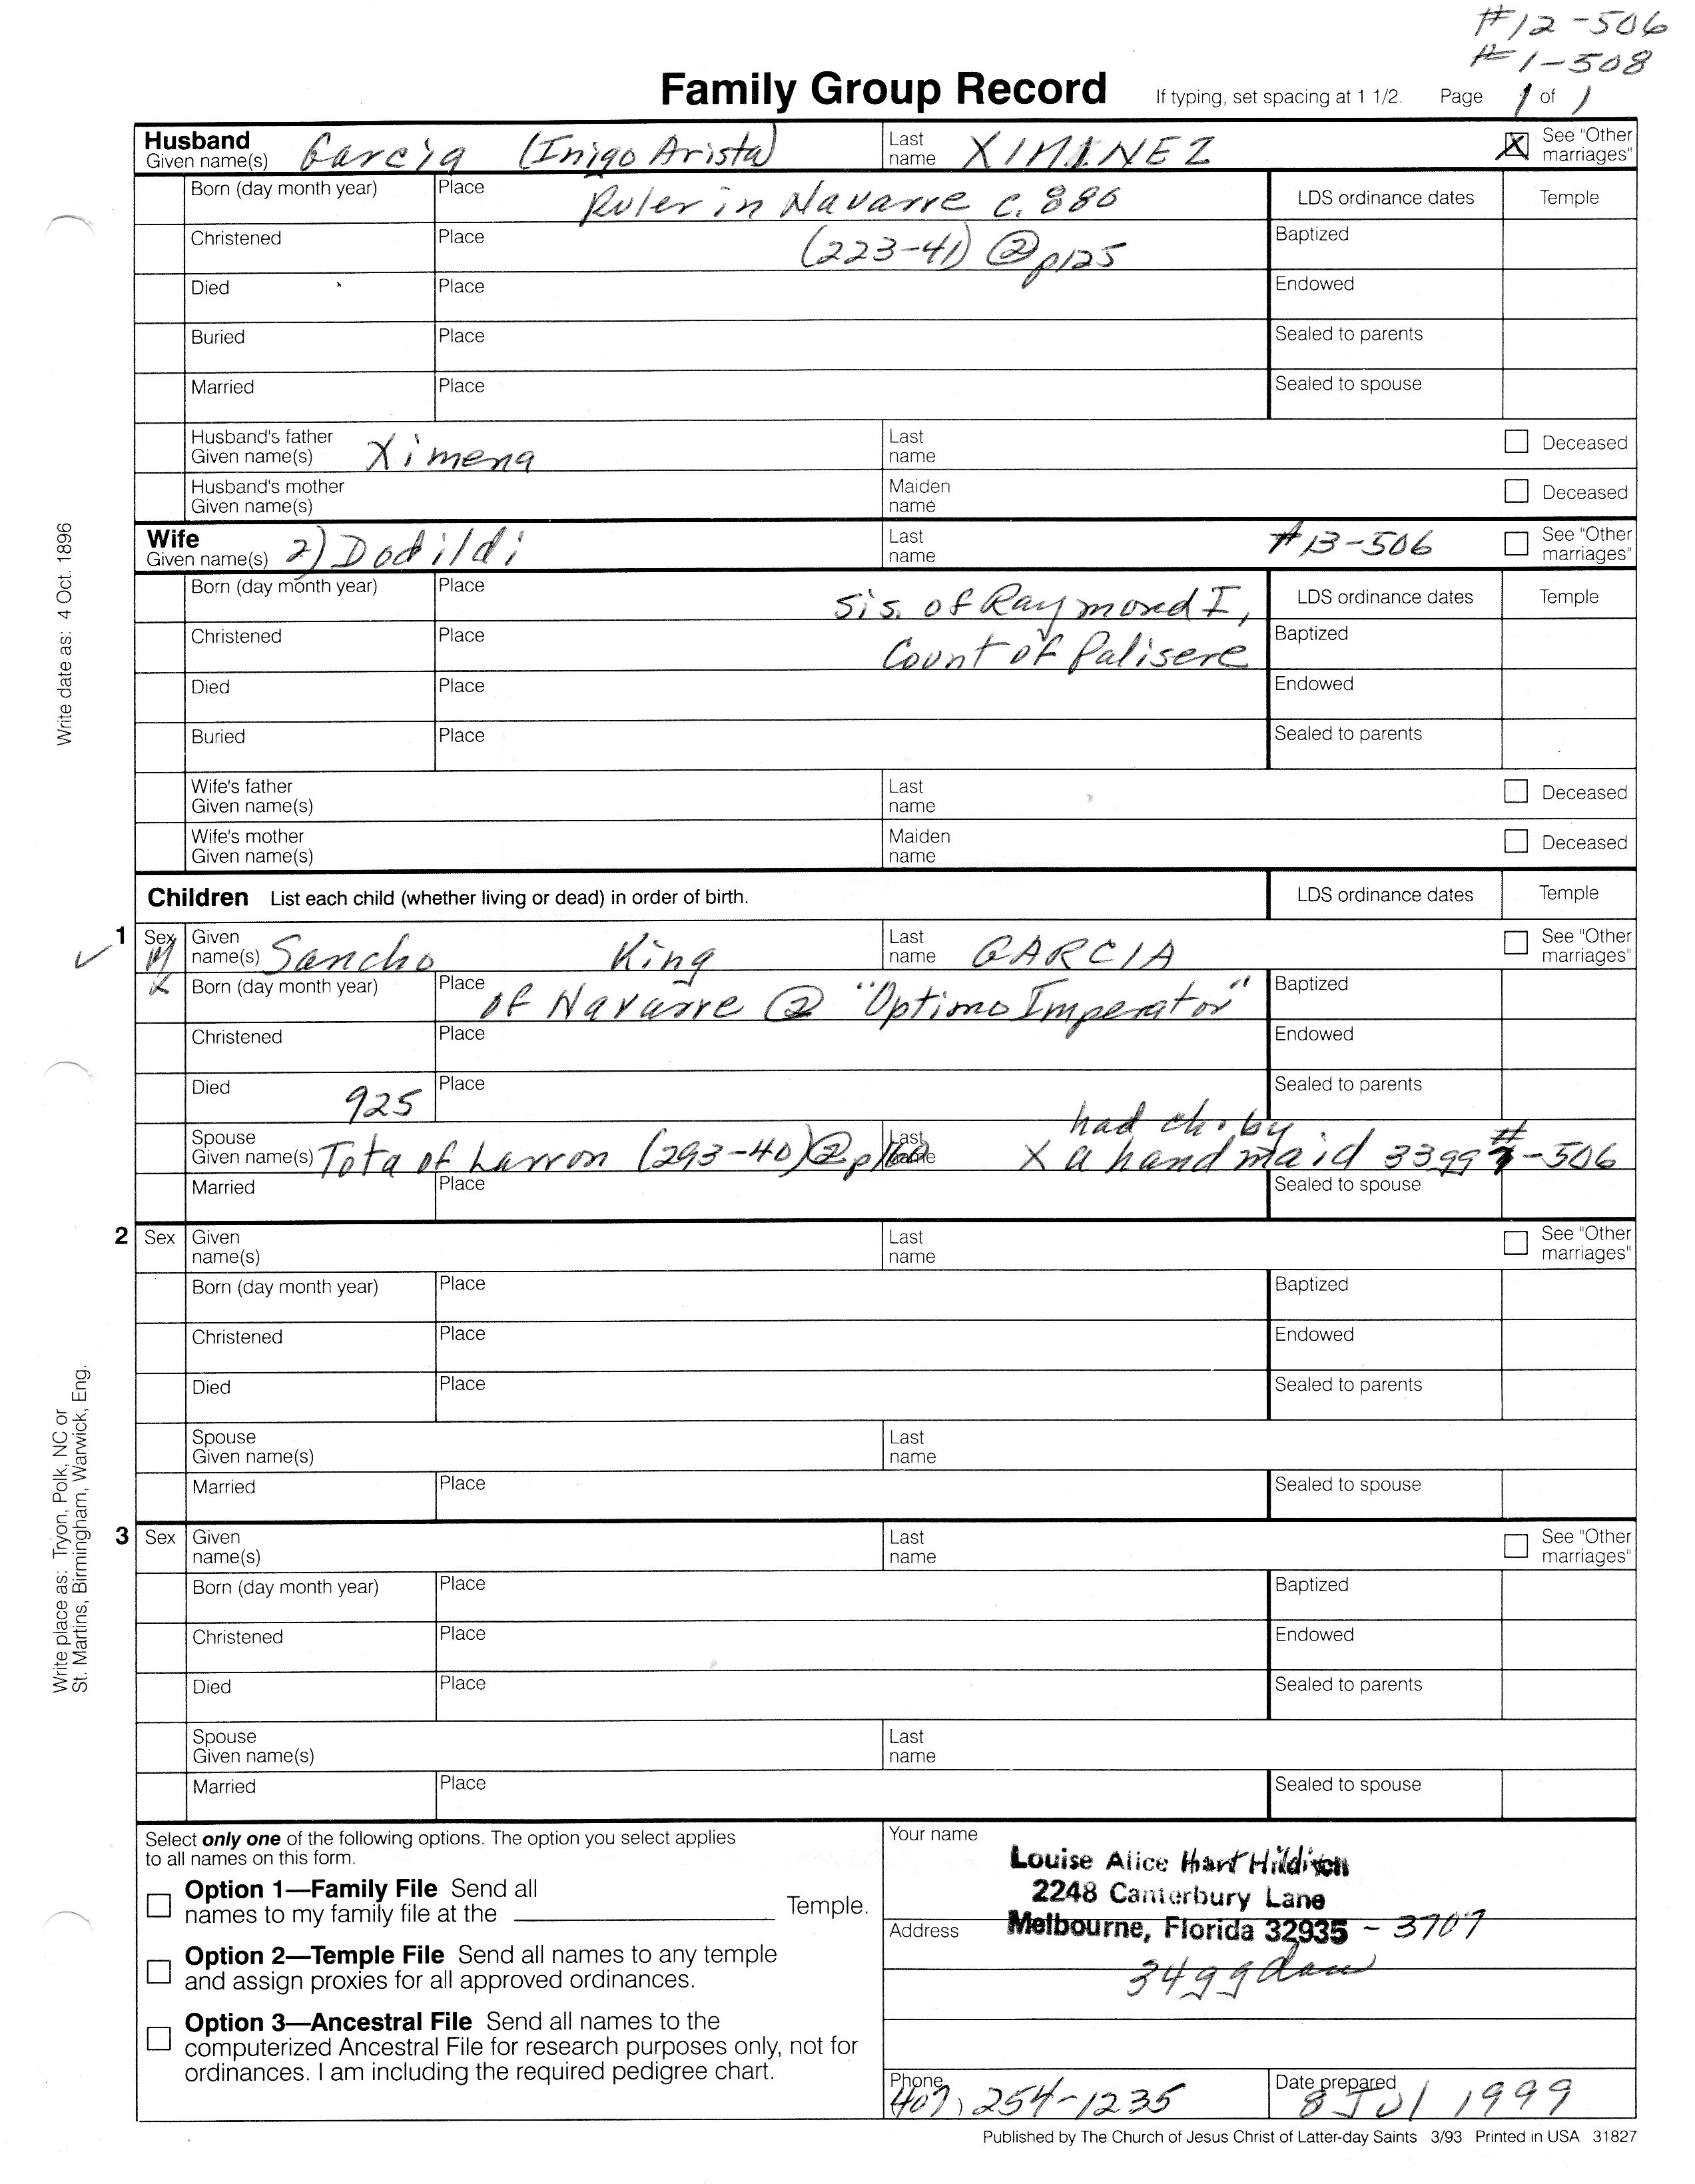 #12-506
#1-508
Family Group Record If typing, set spacing at 1 1/2. Page 1 of 1
Husband
Given name(s) Garcia (Inigo Arista) Last name XIMINEZ X See "Other marriages"
Born (day month year) Place Ruler in Navarre c. 886 LDS ordinance dates Temple
Christened Place (223-41) @ p125 Baptized
Died Place Endowed
Buried Place Sealed to parents
Married Place Sealed to spouse
Husband's father Given name(s) Ximena Last name Deceased
Husband's mother Given name(s) Maiden name Deceased
Wife
Given name(s) 2) Dadildi Last name #13-506 See "Other marriages"
Born (day month year) Place sis. of Raymond I, LDS ordinance dates Temple
Christened Place Count of Palisere Baptized
Died Place Endowed
Buried Place Sealed to parents
Wife's father Given name(s) Last name Deceased
Wife's mother Given name(s) Maiden name Deceased
Children List each child (whether living or dead) in order of birth. LDS ordinance dates Temple
1 Sex M Given name(s) Sancho King Last name GARCIA See "Other marriages"
X Born (day month year) Place of Navarre ② "Optimo Imperator" Baptized
Christened Place Endowed
Died 925 Place Sealed to parents
had ch. by
Spouse Given name(s) Tota of Larron (293-40) ② Last name X a handmaid 33gg # -506
Married Place Sealed to spouse
2 Sex Given name(s) Last name See "Other marriages"
Born (day month year) Place Baptized
Christened Place Endowed
Died Place Sealed to parents
Spouse Given name(s) Last name
Married Place Sealed to spouse
3 Sex Given name(s) Last name See "Other marriages"
Born (day month year) Place Baptized
Christened Place Endowed
Died Place Sealed to parents
Spouse Given name(s) Last name
Married Place Sealed to spouse
Write date as: 4 Oct. 1896
Write place as: Tryon, Polk, NC or
St. Martins, Birmingham, Warwick, Eng.
Select only one of the following options. The option you select applies
to all names on this form.
Option 1—Family File Send all
names to my family file at the Temple.
Option 2—Temple File Send all names to any temple
and assign proxies for all approved ordinances.
Option 3—Ancestral File Send all names to the
computerized Ancestral File for research purposes only, not for
ordinances. I am including the required pedigree chart.
Your name
Louise Alice Hart Hilditch
2248 Canterbury Lane
Address Melbourne, Florida 32935 - 3707
34gg dau
Phone 407) 254-1235 Date prepared 8 Jul 1999
Published by The Church of Jesus Christ of Latter-day Saints 3/93 Printed in USA 31827